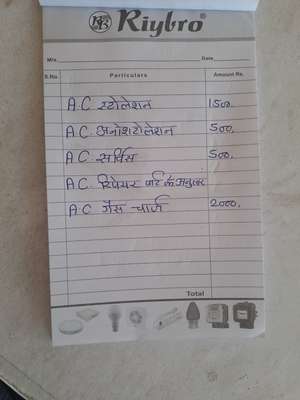 Riybro®
M/s.
Date
S.No. Particulars Amount Rs.
A.C स्टोलेशन 1500.
A.C. अनोशटोलेशन 500.
A.C सर्विस 500.
A.C. रिपेयर पार्ट के अनुसार
A.C गैस चार्ज 2000.
Total